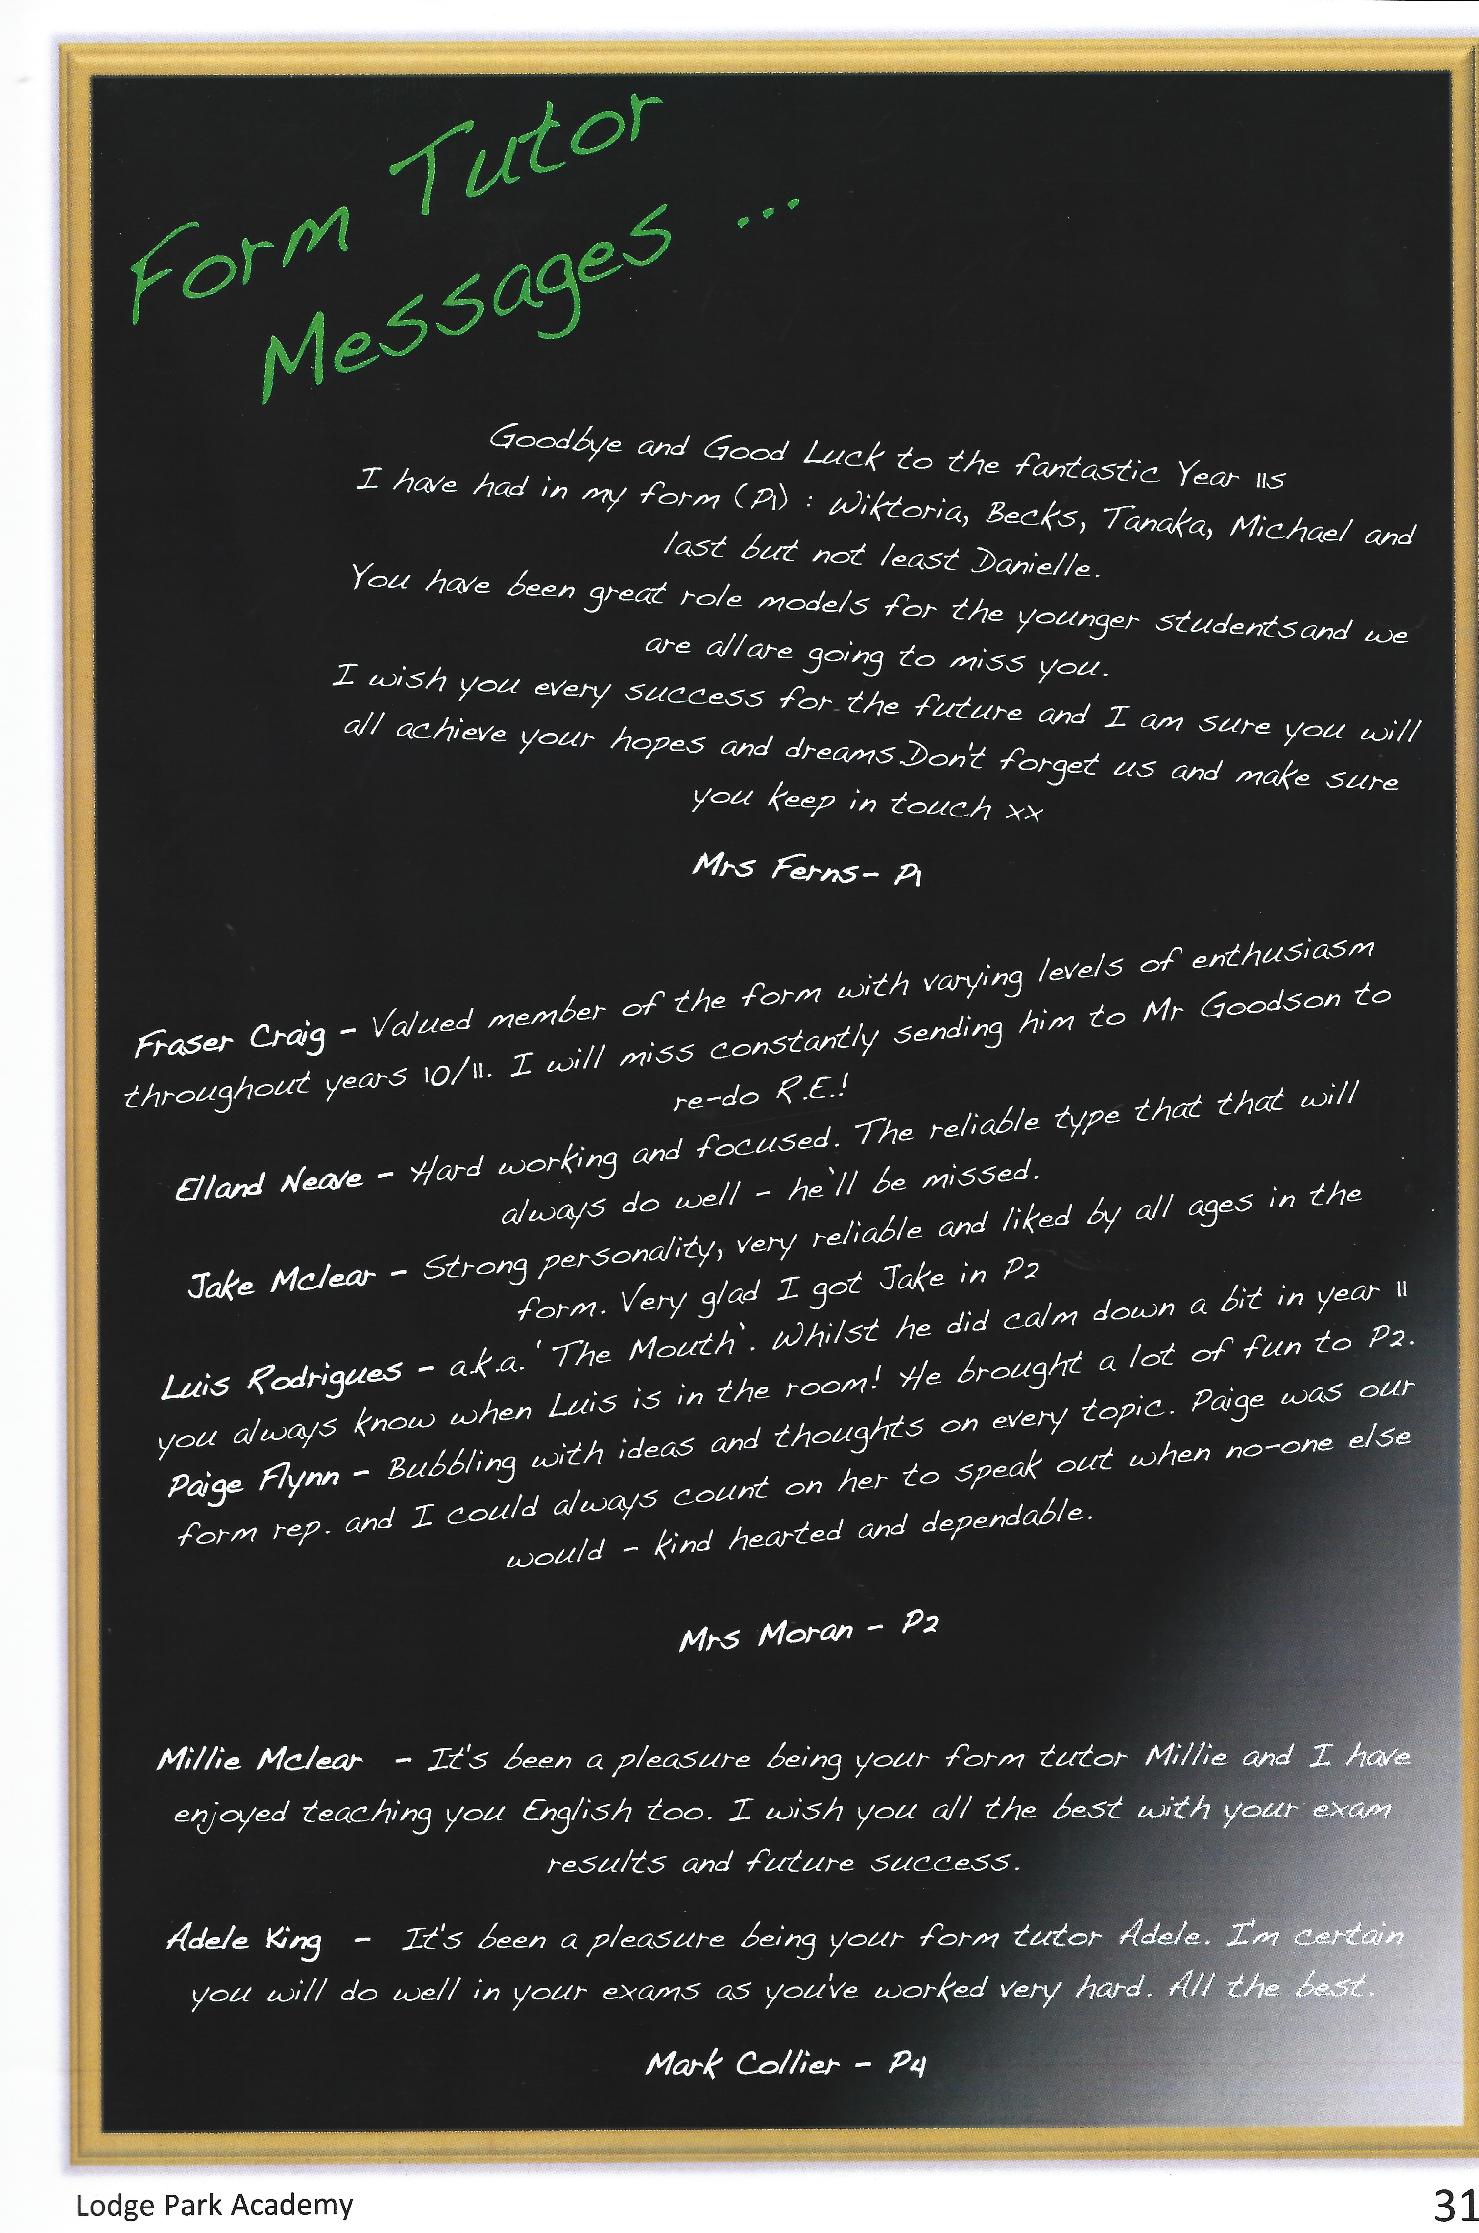 Form Tutor
Messages ...
Goodbye and Good Luck to the fantastic Year 11s
I have had in my form (P1) : Wiktoria, Becks, Tanaka, Michael and
last but not least Danielle.
You have been great role models for the younger studentsand we
are allare going to miss you.
I wish you every success for the future and I am sure you will
all achieve your hopes and dreams.Don't forget us and make sure
you keep in touch xx
Mrs Ferns- P1
Fraser Craig - Valued member of the form with varying levels of enthusiasm
throughout years 10/11. I will miss constantly sending him to Mr Goodson to
re-do R.E.!
Elland Neave - Hard working and focused. The reliable type that that will
always do well - he'll be missed.
Jake Mclear - Strong personality, very reliable and liked by all ages in the
form. Very glad I got Jake in P2
Luis Rodrigues - a.k.a. 'The Mouth'. Whilst he did calm down a bit in year 11
you always know when Luis is in the room! He brought a lot of fun to P2.
Paige Flynn - Bubbling with ideas and thoughts on every topic. Paige was our
form rep. and I could always count on her to speak out when no-one else
would - kind hearted and dependable.
Mrs Moran - P2
Millie Mclear - It's been a pleasure being your form tutor Millie and I have
enjoyed teaching you English too. I wish you all the best with your exam
results and future success.
Adele King - It's been a pleasure being your form tutor Adele. I'm certain
you will do well in your exams as you've worked very hard. All the best.
Mark Collier - P4
Lodge Park Academy
31